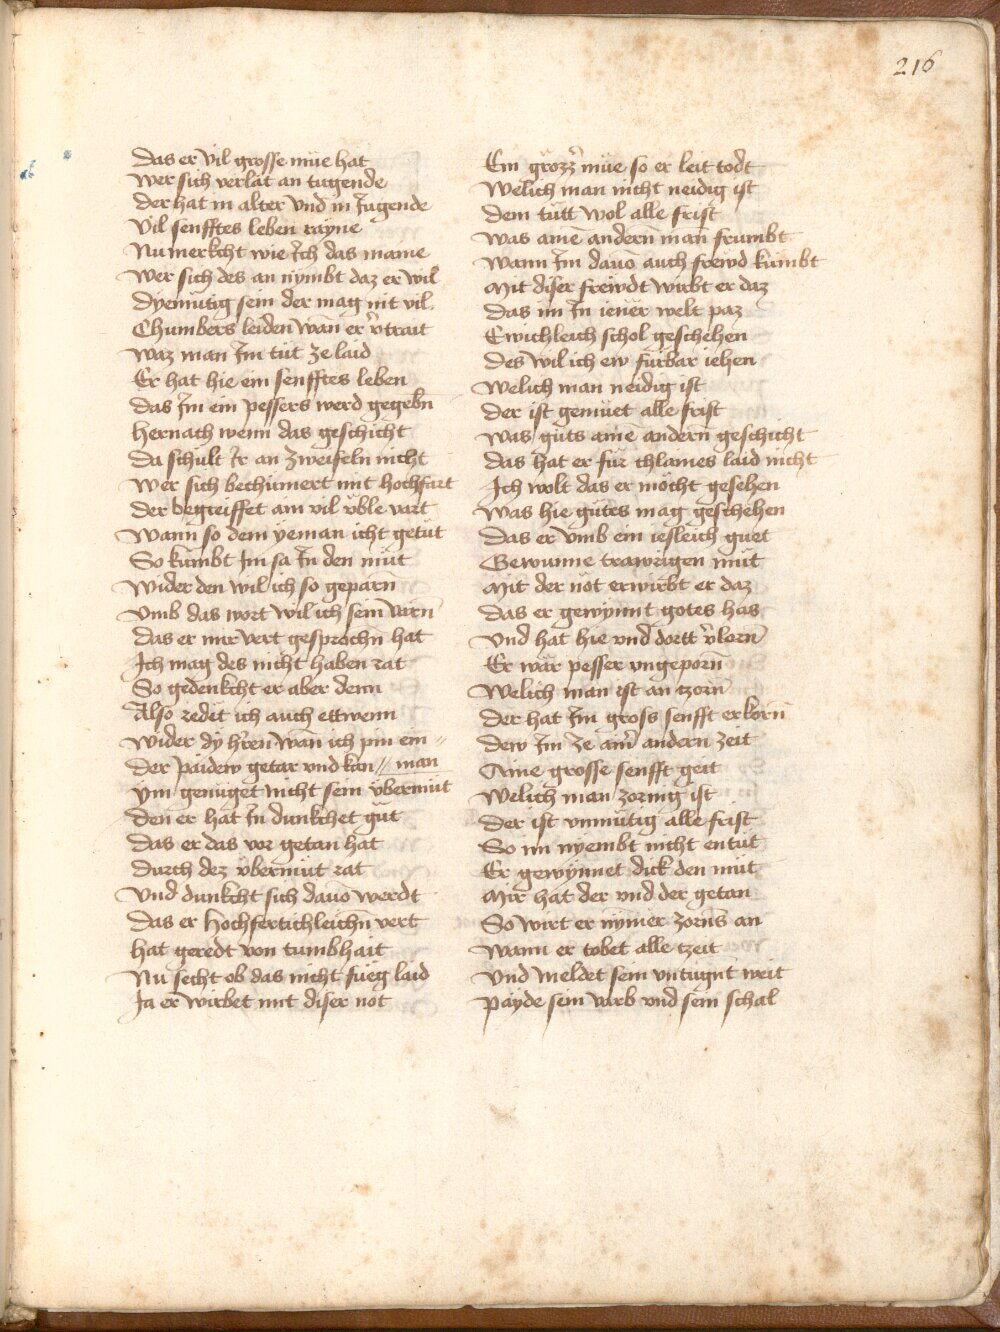 216
Das er vil grosse müe hat
Wer sich verlat an tugende
Der hat in alter vnd in Jugende
Vil senfftes leben rayne
Nu merkcht wie Ich das maine
Wer sich des an nymbt daz er wil
Dyemütig sein der mag nit vil
Chumbers leiden wan̄ er v̓trait
Waz man Im tüt ze laid
Er hat hie ein senfftes leben
Das Im ein pessers werd gegebn̄
Hernach wenn das geschicht
Da schült Ir an zweifeln nicht
Wer sich bechümert mit hochfart
Der begreiffet ain vil üble vart
Wann so dem yeman icht getüt
So kümbt Im sa In den müt
Wider den wil ich so geparn̄
Vmb das wort wil ich sein varn̄
Das er mir vert gesprochn̄ hat
Ich mag des nicht haben rat
So gedenkcht er aber denn
Also redet ich auch ettwenn
Wider dy h̓ren wan̄ ich pin ein
Der paidew getar vnd kan // man
Ym genuget nicht sein vbermüt
Den er hat In dunkchet güt
Das er das vor getan hat
Durch dez vbermüt rat
Vnd dunkcht sich dauō werdt
Das er hochfertichleichn̄ vert
Hat geredt von tumbhait
Nu secht ob das nicht fueg laid
Ja er wirbet mit diser not
Ein grozz̓ müe so er leit todt
Welich man nicht neidig ist
Dem tütt wol alle frist
Was aine andern̄ man frumbt
Wann Im dauō auch frewd kümbt
Mit diser frewdt wirbt er daz
Das im In iener welt paz
Ewichleich schol geschehen
Des wil ich ew fürbar iehen
Welich man neidig ist
Der ist gemüet alle frist
Was güts aine andern̄ geschicht
Das hat er für chlaines laid nicht
Ich wolt das er möcht gesehen
Was hie gütes mag geschehen
Das er vmb ein iesleich guet
Gewunne trawrigen müt
Mit der not erwirbt er daz
Das er gewynnt gotes has
Vnd hat hie vnd dortt v̓lorn̄
Er wär pesser vngeporn̄
Welich man ist an zorn̄
Der hat Im gross senfft erkorn̄
Dew Im ze am̓ andern zeit
Aine grosse senfft geit
Welich man zornig ist
Der ist vnmütig alle frist
So im nyembt nicht entüt
Er gewynnet dick den müt
Mir hat der vnd der getan
So wirt er nymer zorns an
Wann er tobet alle tzeit
Vnd meldet sein vntugnt weit
Payde sein varb vnd sein schal